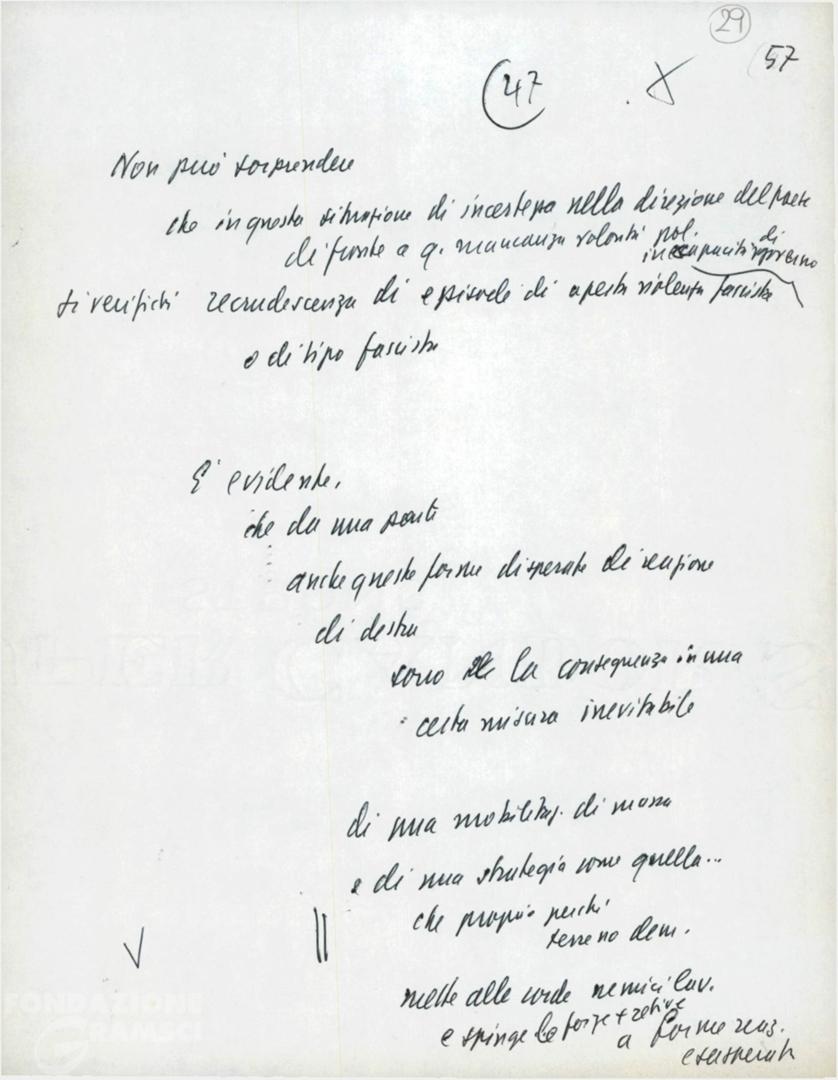 29
57
47
Non può sorprendere
che in questa situazione di incertezza nella direzione del paese
di fronte a q. mancanza volontà pol.
incapacità di governo
si verifichi recrudescenza di episodi di aperta violenza fascista
o di tipo fascista
E' evidente,
che da una parte
anche queste forme disperate di reazione
di destra
sono la conseguenza in una
certa misura inevitabile
di una mobilitaz. di massa
e di una strategia come quella...
che proprio perché
terreno dem.
mette alle corde nemici lav.
e spinge le forze + retive
a forme reaz.
esasperate
FONDAZIONE
GRAMSCI